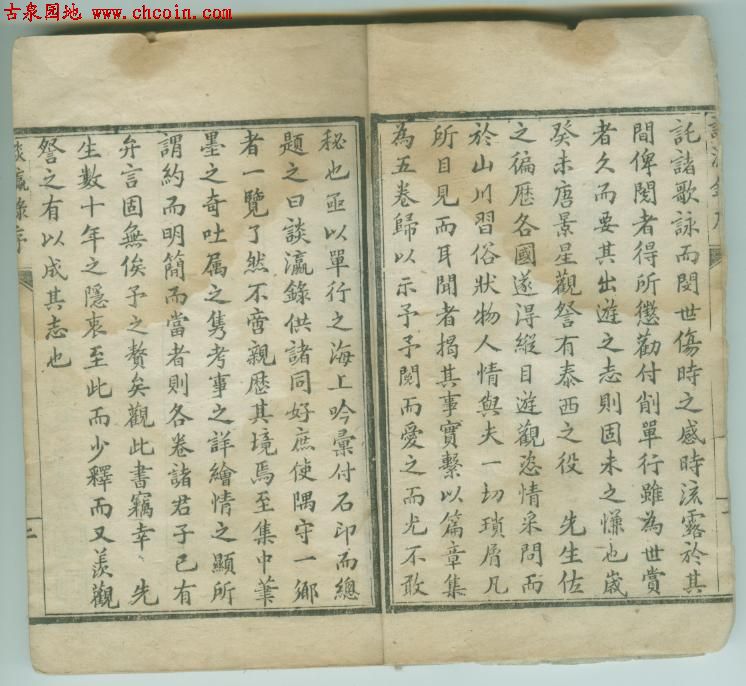 古泉园地 www.chcoin.com
託諸歌詠而閔世傷時之感時流露於其
間俾閱者得所懲勸付削單行雖為世賞
者久而要其出遊之志則固未之慊也歲
癸未唐景星觀詧有泰西之役　先生佐
之徧歷各國遂得縱目遊觀恣情采問而
於山川習俗狀物人情與夫一切瑣屑凡
所目見而耳聞者揭其事實繫以篇章集
為五卷歸以示予予閱而愛之而尤不敢
秘也亟以單行之海上吟彙付石印而總
題之曰談瀛錄供諸同好庶使隅守一鄉
者一覽了然不啻親歷其境焉至集中筆
墨之奇吐属之雋考事之詳繪情之顯所
謂約而明簡而當者則各卷諸君子已有
弁言固無俟予之贅矣觀此書竊幸　先
生數十年之隱衷至此而少釋而又羨觀
詧之有以成其志也
談瀛錄序
二